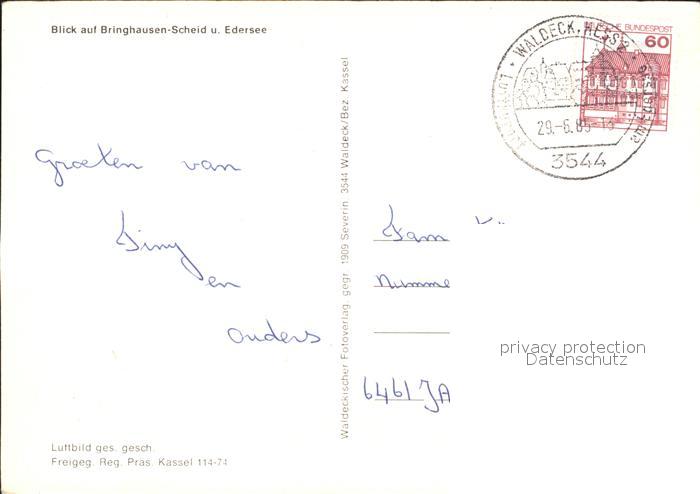 Blick auf Bringhausen-Scheid u. Edersee
DEUTSCHE BUNDESPOST
60
WALDECK, HESS
29.-6.8
3544
Groeten van
en
ouders
Fam v.
Numme
6461 JA
Waldeckischer Fotoverlag gegr. 1909 Severin 3544 Waldeck/Bez. Kassel
privacy protection
Datenschutz
Luftbild ges. gesch.
Freigeg. Reg. Präs. Kassel 114-74